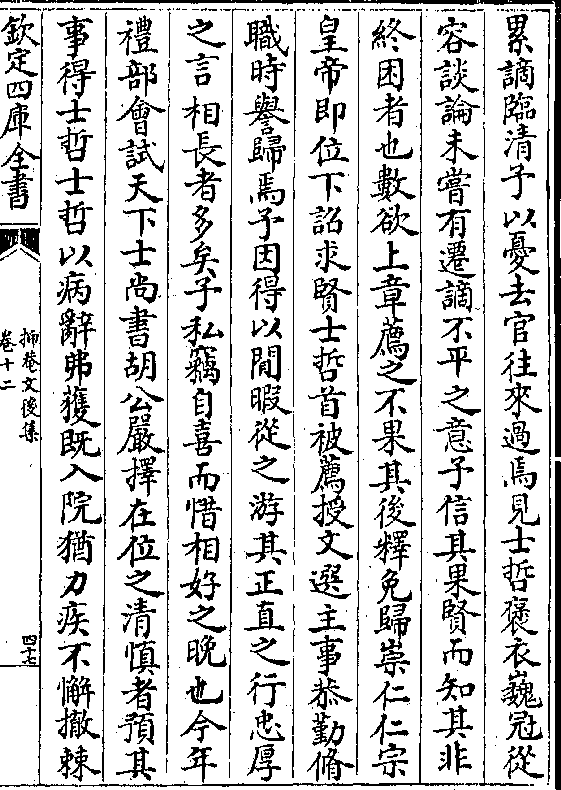 累謫臨清予以憂去官往來過焉見士哲褒衣巍冠從
容談論未嘗有遷謫不平之意予信其果賢而知其非
終困者也數欲上章薦之不果其後釋免歸崇仁仁宗
皇帝即位下詔求賢士哲首被薦授文選主事恭勤脩
職時譽歸焉予因得以閒暇從之游其正直之行忠厚
之言相長者多矣予私竊自喜而惜相好之晚也今年
禮部會試天下士尚書胡公嚴擇在位之清慎者預其
事得士哲士哲以病辭弗獲既入院猶力疾不懈撤棘
欽定四庫全書
抑菴文後集
卷十二
四十七